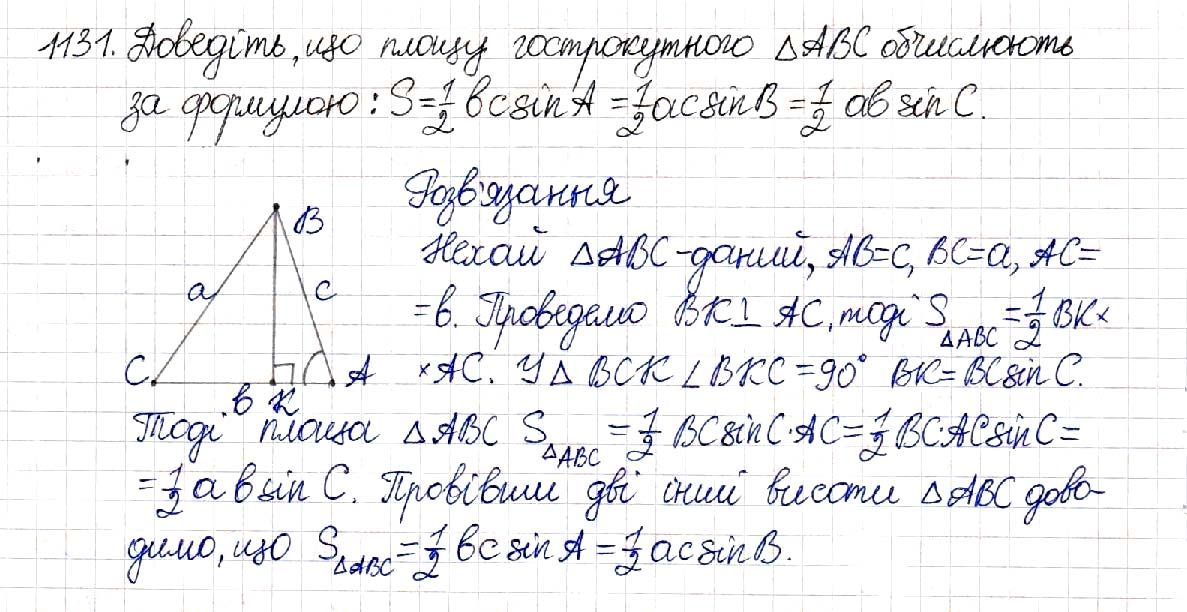 1131. Доведіть, що площу гострокутного △ABC обчислюють
за формулою: S=1/2 bc sin A = 1/2 ac sin B = 1/2 ab sin C.
Розв'язання
B
Нехай △ABC - даний, AB=c, BC=a, AC=
a c
=b. Проведемо BK⊥ AC, тоді S△ABC = 1/2 BK×
C A
×AC. У △ BCK ∠BKC = 90° BK= BC sin C.
b K
Тоді площа △ABC S△ABC = 1/2 BC sin C·AC = 1/2 BC·AC sin C =
= 1/2 a b sin C. Провівши дві інші висоти △ABC дово-
димо, що S△ABC = 1/2 bc sin A = 1/2 ac sin B.